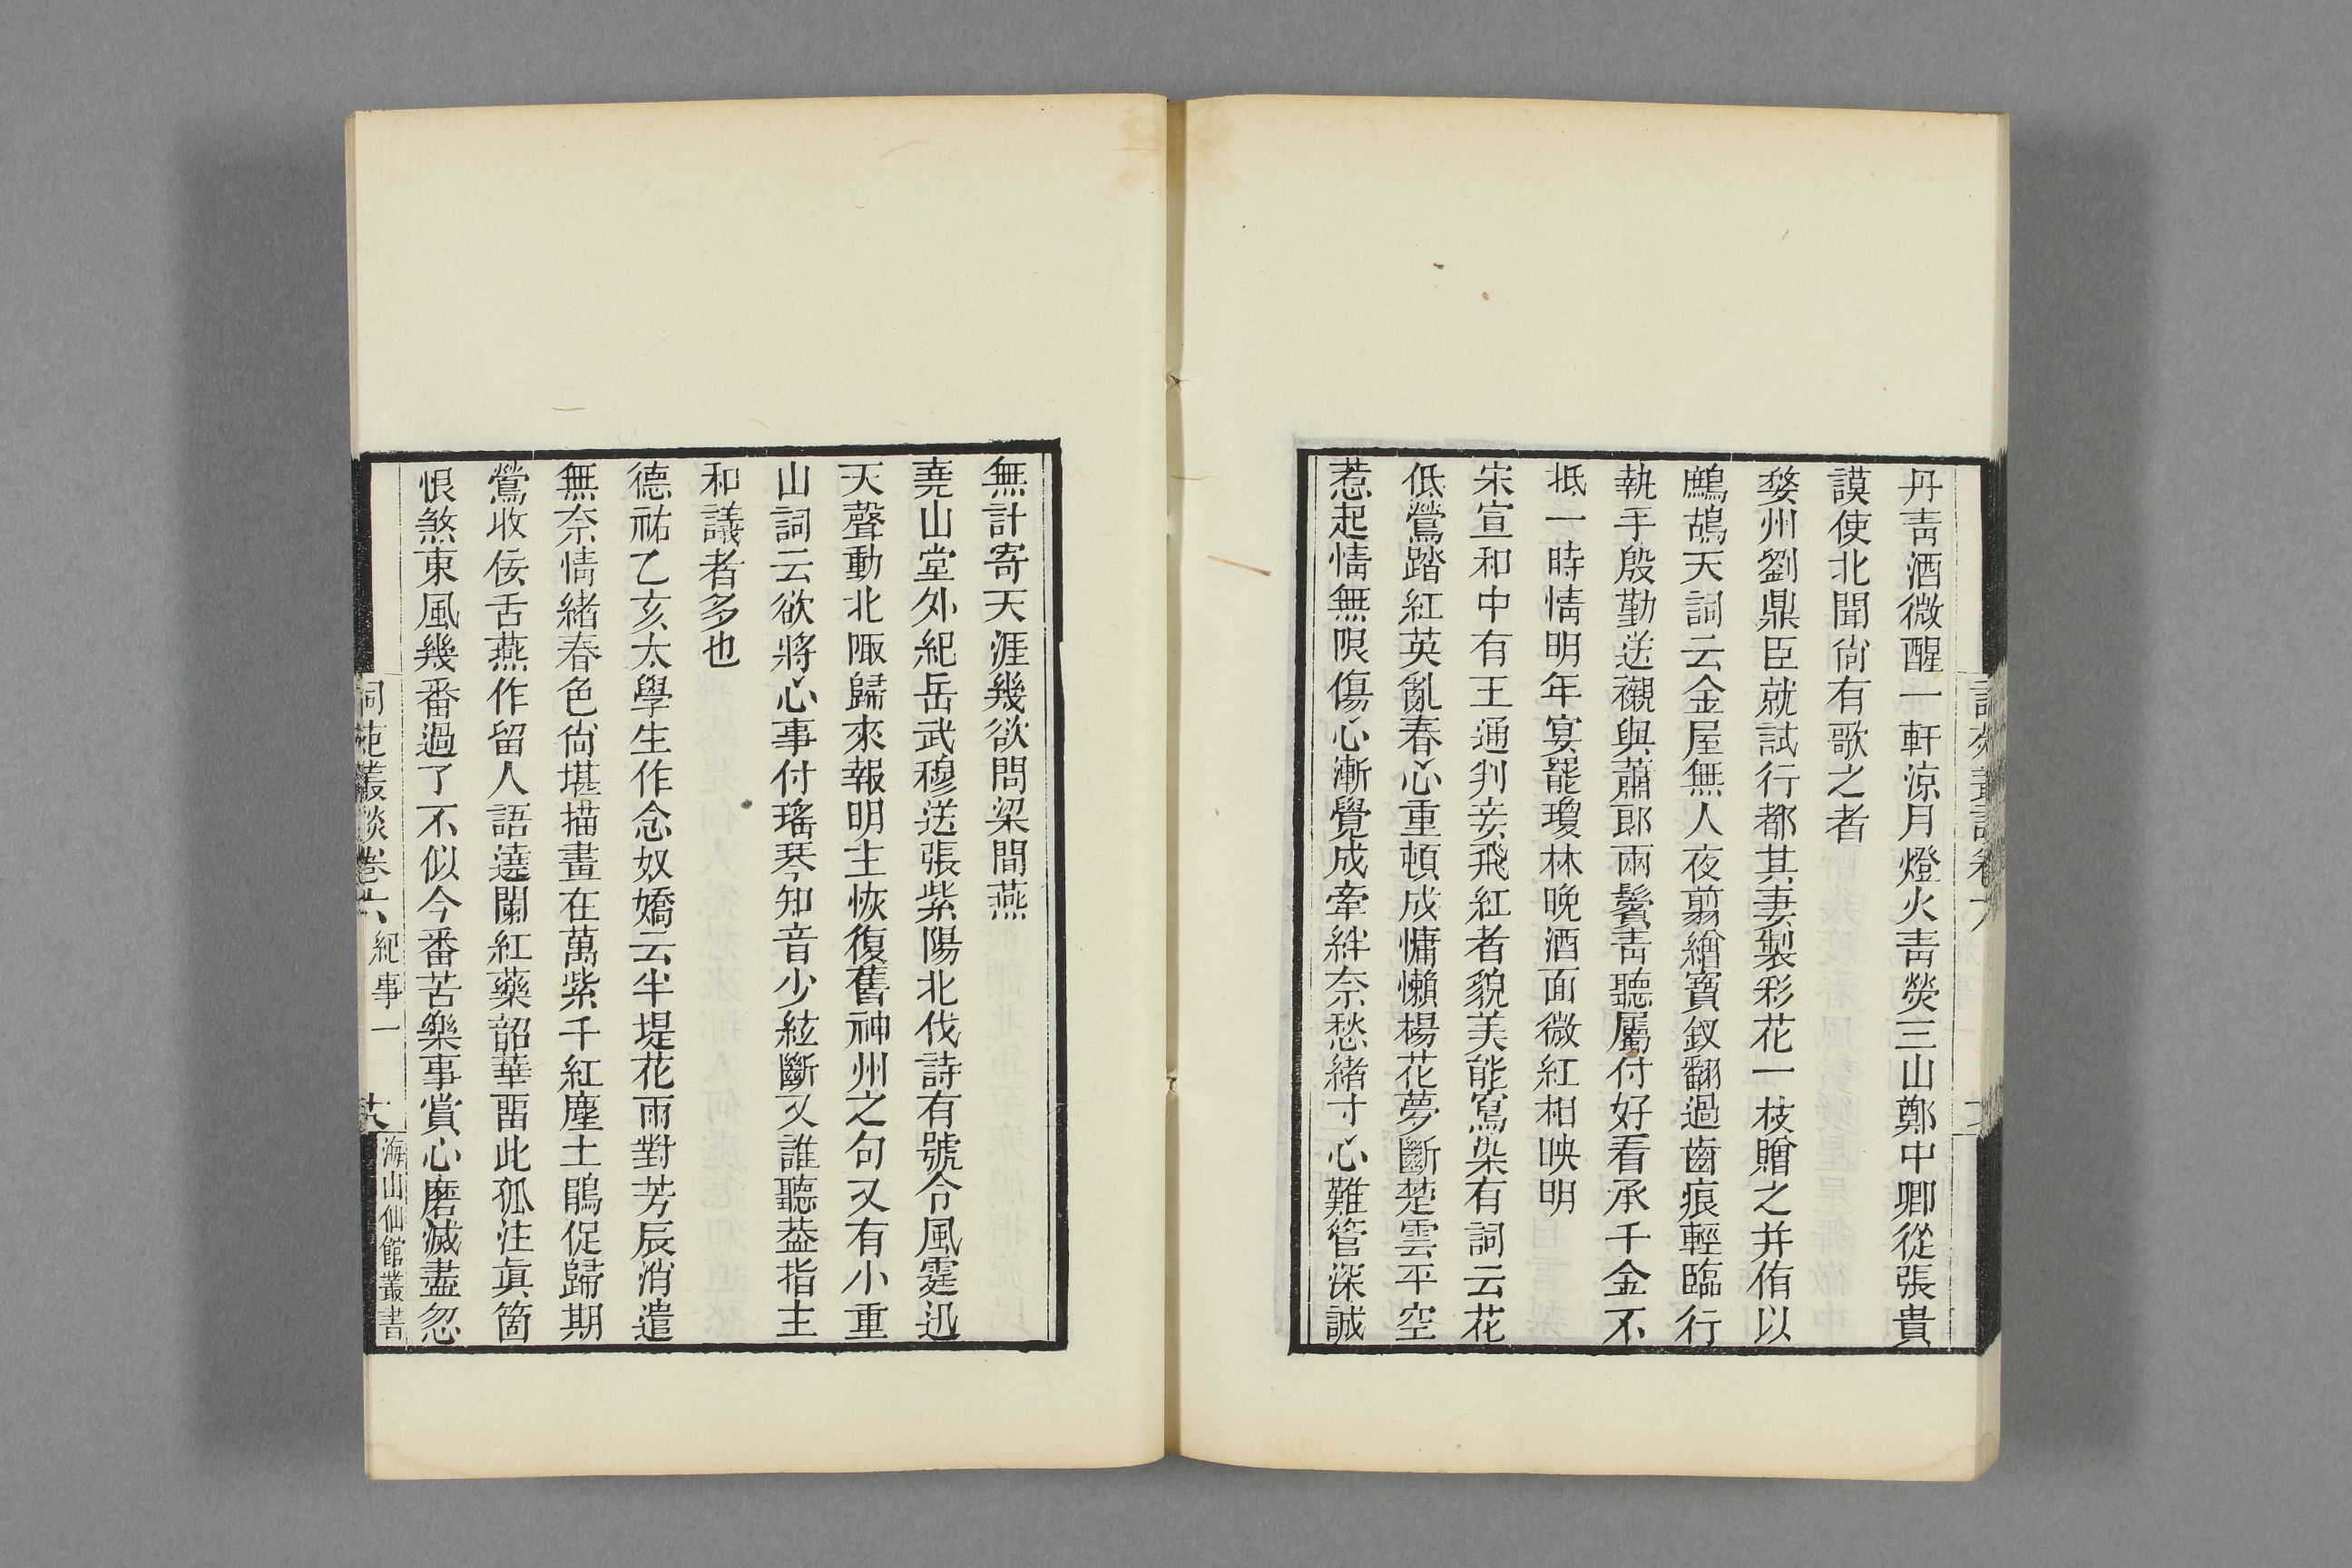 丹靑酒微醒一軒涼月燈火靑熒三山鄭中卿從張貴
謨使北聞尙有歌之者
婺州劉鼎臣就試行都其妻製彩花一枝贈之并侑以
鷓鴣天詞云金屋無人夜翦繒寶釵翻過齒痕輕臨行
執手殷勤送襯與蕭郎兩鬢靑聽屬付好看承千金不
抵一時情明年宴罷瓊林晚酒面微紅相映明
宋宣和中有王通判妾飛紅者貌美能寫染有詞云花
低鶯踏紅英亂春心重頓成慵懶楊花夢斷楚雲平空
惹起情無限傷心漸覺成牽絆奈愁緒寸心難管深誠
無計寄天涯幾欲問梁間燕
堯山堂外紀岳武穆送張紫陽北伐詩有號令風霆迅
天聲動北陬歸來報明主恢復舊神州之句又有小重
山詞云欲將心事付瑤琴知音少絃斷又誰聽葢指主
和議者多也
德祐乙亥太學生作念奴嬌云半堤花雨對芳辰消遣
無奈情緖春色尙堪描畫在萬紫千紅塵土鵑促歸期
鶯收佞舌燕作留人語遶闌紅藥韶華畱此孤注眞箇
恨煞東風幾番過了不似今番苦樂事賞心磨滅盡忽
詞苑叢談卷六 紀事一 六 海山仙館叢書